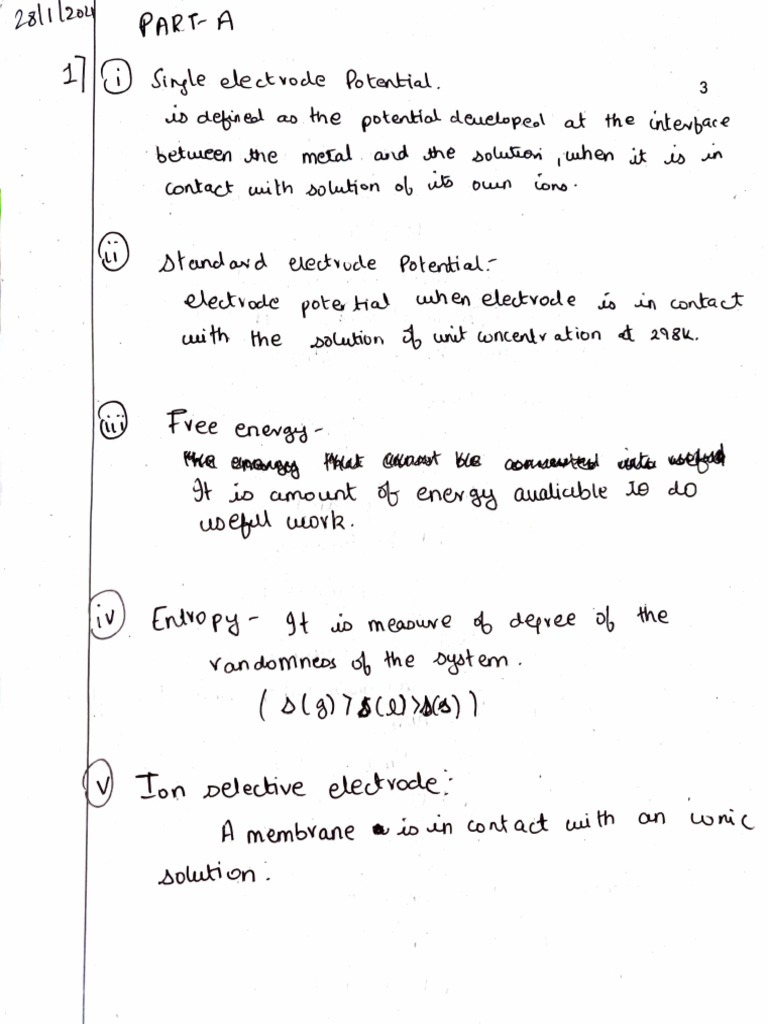 28/1/2021
PART-A
1] i Single electrode Potential.
3
is defined as the potential developed at the interface
between the metal and the solution, when it is in
contact with solution of its own ions.
ii Standard electrode Potential:-
electrode potential when electrode is in contact
with the solution of unit concentration at 298K.
iii Free energy -
the energy that cannot be converted into useful
It is amount of energy avaliable to do
useful work.
iv Entropy - It is measure of degree of the
randomness of the system.
(S(g)>S(l)>S(s))
v Ion selective electrode:-
A membrane is in contact with an ionic
solution.